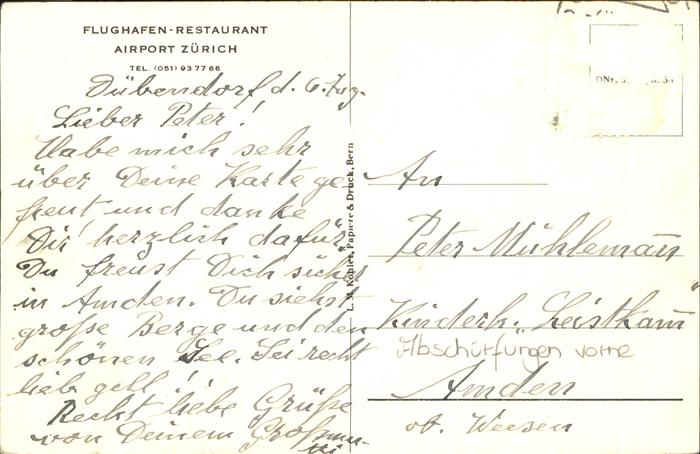 FLUGHAFEN-RESTAURANT
AIRPORT ZÜRICH
TEL. (051) 93 77 66
Dübendorf d. 6. Aug.
Lieber Peter!
Habe mich sehr
über Deine Karte ge-
freut und danke
Dir herzlich dafür,
Du freust Dich sicher
in Amden. Du siehst
große Berge und den
schönen See. Sei recht
lieb gell!
Recht liebe Grüße
von Deinem Großmu-
tti
Papiere & Druck, Bern
DNr.
An
Peter Mühlemann
Kinderh. „Leistkamm"
Abschürfungen vorne
Amden
ob. Weesen